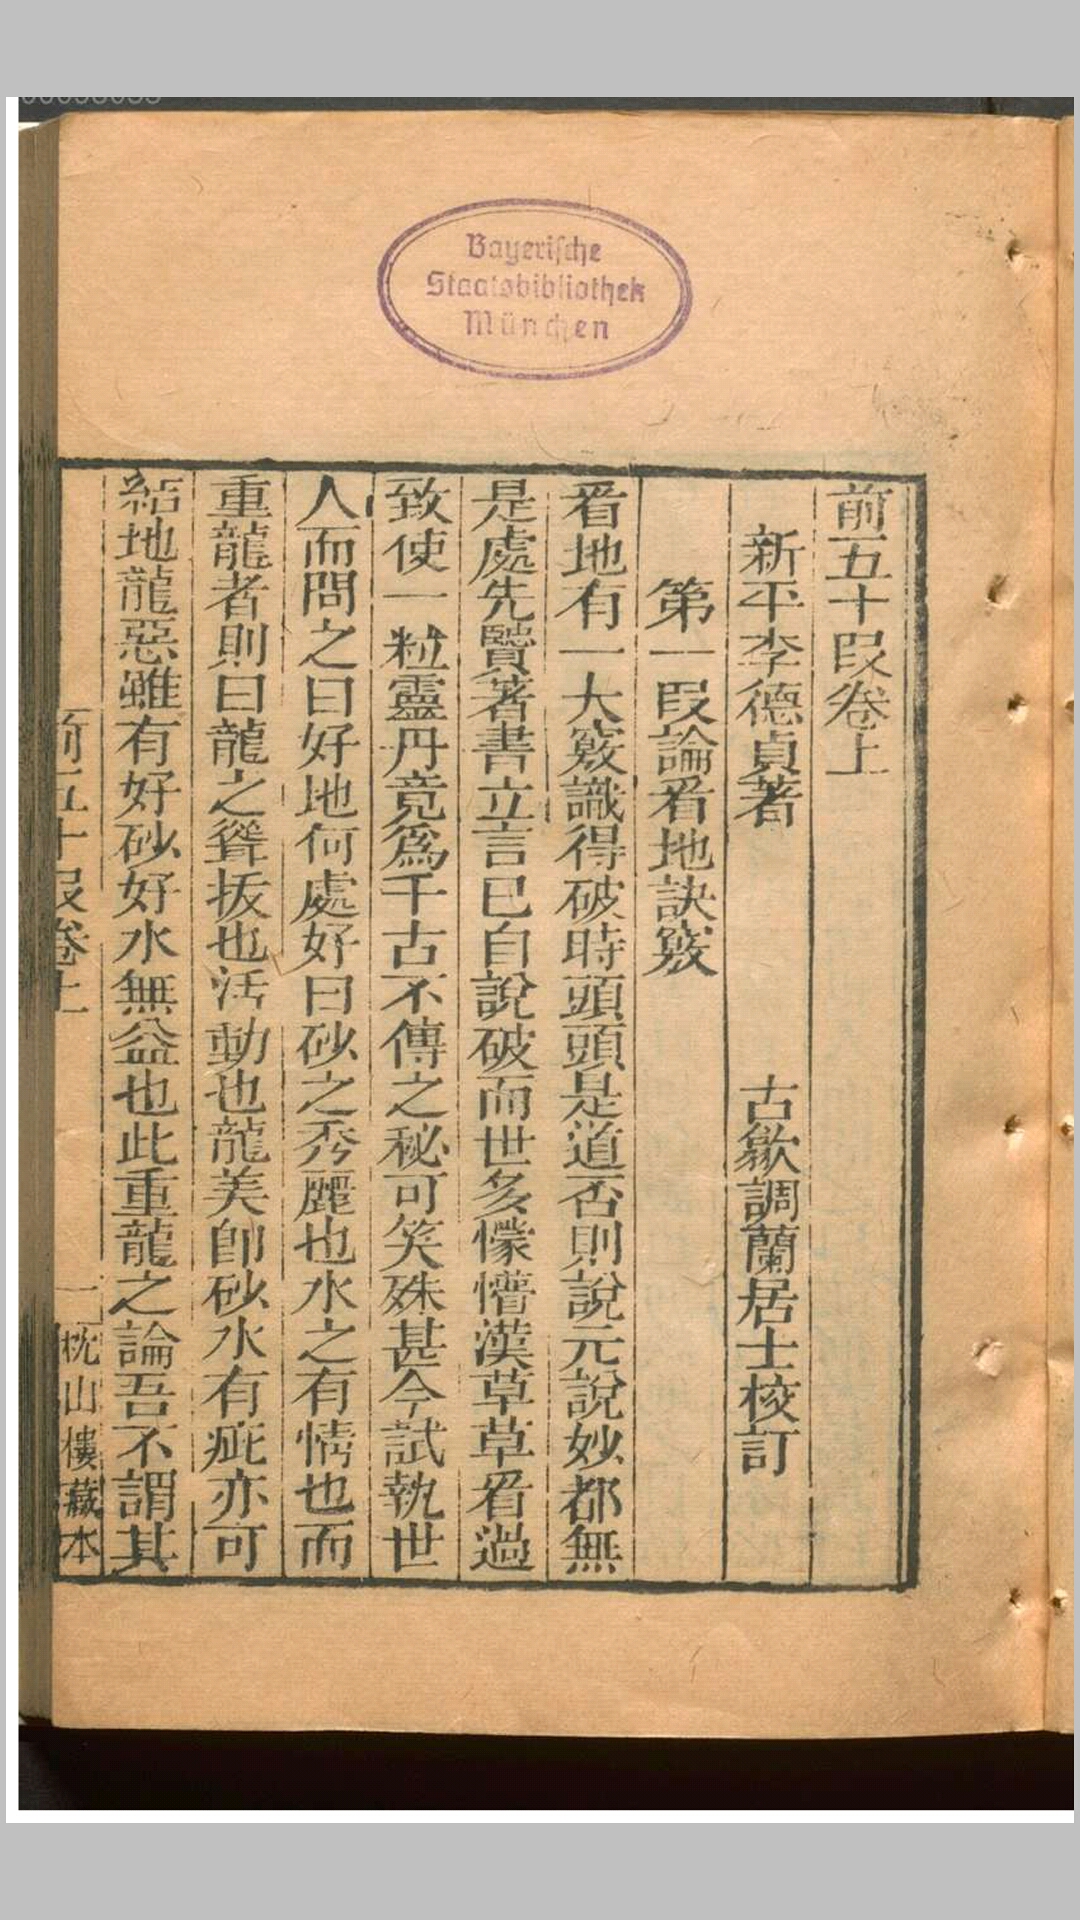 Bayerische
Staatsbibliothek
München
前五十段卷上
新平李德貞著 古歙調蘭居士校訂
第一段論看地訣竅
看地有一大竅識得破時頭頭是道否則說元說妙都無
是處先賢著書立言已自說破而世多懞懵漢草草看過
致使一粒靈丹竟為千古不傳之秘可笑殊甚今試執世
人而問之曰好地何處好曰砂之秀麗也水之有情也而
重龍者則曰龍之聳拔也活動也龍美卽砂水有疵亦可
結地龍惡雖有好砂好水無益也此重龍之論吾不謂其
前五十段卷上 一 枕山樓藏本